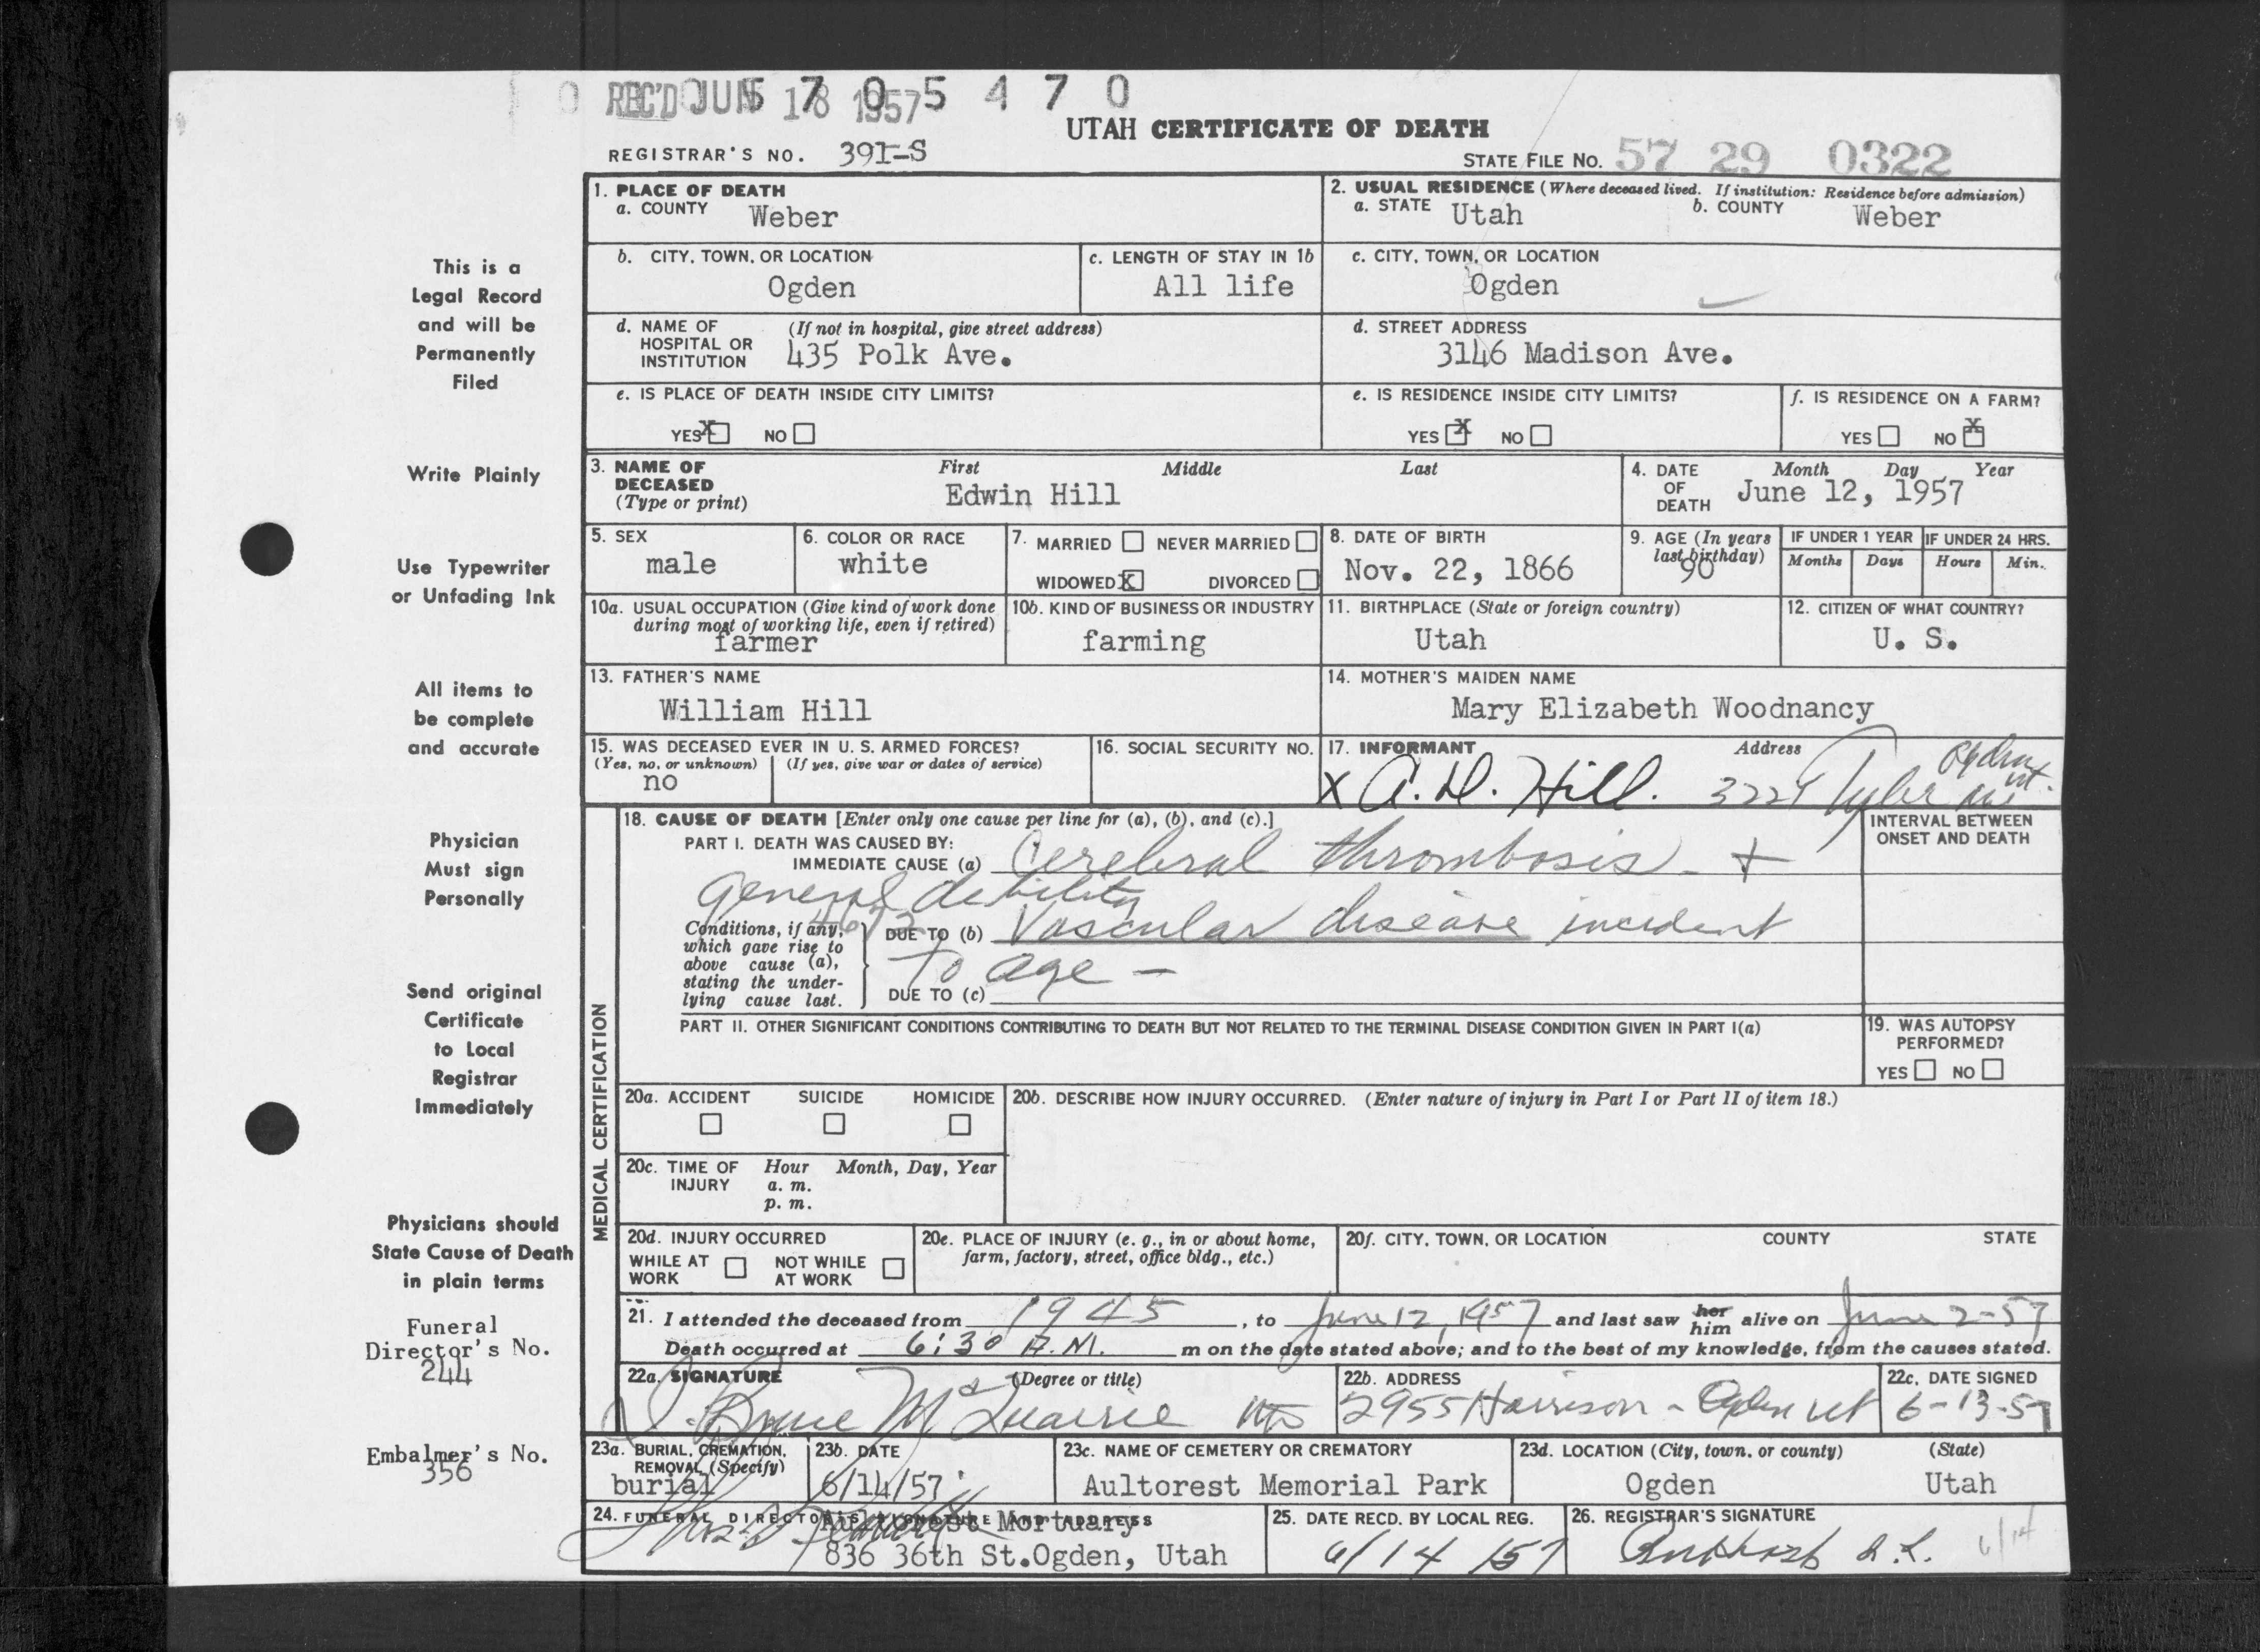 REC'D JUN 18 1957
5 7 0 5 4 7 0
UTAH CERTIFICATE OF DEATH
REGISTRAR'S NO. 391-S
STATE FILE NO. 57 29 0322
This is a
Legal Record
and will be
Permanently
Filed
Write Plainly
Use Typewriter
or Unfading Ink
All items to
be complete
and accurate
Physician
Must sign
Personally
Send original
Certificate
to Local
Registrar
Immediately
Physicians should
State Cause of Death
in plain terms
Funeral
Director's No.
244
Embalmer's No.
356
1. PLACE OF DEATH
a. COUNTY Weber
2. USUAL RESIDENCE (Where deceased lived. If institution: Residence before admission)
a. STATE Utah b. COUNTY Weber
b. CITY, TOWN, OR LOCATION
Ogden
c. LENGTH OF STAY IN 1b
All life
c. CITY, TOWN, OR LOCATION
Ogden
d. NAME OF HOSPITAL OR INSTITUTION (If not in hospital, give street address)
435 Polk Ave.
d. STREET ADDRESS
3146 Madison Ave.
e. IS PLACE OF DEATH INSIDE CITY LIMITS?
YES X NO
e. IS RESIDENCE INSIDE CITY LIMITS?
YES X NO
f. IS RESIDENCE ON A FARM?
YES NO X
3. NAME OF DECEASED (Type or print)
First Middle Last
Edwin Hill
4. DATE OF DEATH
Month Day Year
June 12, 1957
5. SEX
male
6. COLOR OR RACE
white
7. MARRIED NEVER MARRIED
WIDOWED X DIVORCED
8. DATE OF BIRTH
Nov. 22, 1866
9. AGE (In years last birthday)
90
IF UNDER 1 YEAR
Months Days
IF UNDER 24 HRS.
Hours Min.
10a. USUAL OCCUPATION (Give kind of work done during most of working life, even if retired)
farmer
10b. KIND OF BUSINESS OR INDUSTRY
farming
11. BIRTHPLACE (State or foreign country)
Utah
12. CITIZEN OF WHAT COUNTRY?
U. S.
13. FATHER'S NAME
William Hill
14. MOTHER'S MAIDEN NAME
Mary Elizabeth Woodnancy
15. WAS DECEASED EVER IN U. S. ARMED FORCES?
(Yes, no, or unknown) (If yes, give war or dates of service)
no
16. SOCIAL SECURITY NO.
17. INFORMANT Address
X A. H. Hill. Tyler Ave Ogden Ut.
MEDICAL CERTIFICATION
18. CAUSE OF DEATH [Enter only one cause per line for (a), (b), and (c).]
INTERVAL BETWEEN ONSET AND DEATH
PART I. DEATH WAS CAUSED BY:
IMMEDIATE CAUSE (a) Cerebral thrombosis - +
General debility
Conditions, if any, which gave rise to above cause (a), stating the underlying cause last.
DUE TO (b) Vascular disease incident
To age -
DUE TO (c)
PART II. OTHER SIGNIFICANT CONDITIONS CONTRIBUTING TO DEATH BUT NOT RELATED TO THE TERMINAL DISEASE CONDITION GIVEN IN PART I(a)
19. WAS AUTOPSY PERFORMED?
YES NO
20a. ACCIDENT SUICIDE HOMICIDE
20b. DESCRIBE HOW INJURY OCCURRED. (Enter nature of injury in Part I or Part II of item 18.)
20c. TIME OF INJURY Hour Month, Day, Year
a. m.
p. m.
20d. INJURY OCCURRED
WHILE AT WORK NOT WHILE AT WORK
20e. PLACE OF INJURY (e. g., in or about home, farm, factory, street, office bldg., etc.)
20f. CITY, TOWN, OR LOCATION COUNTY STATE
21. I attended the deceased from 1945, to June 12, 1957 and last saw her him alive on June 2-57
Death occurred at 6:30 A.M. m on the date stated above; and to the best of my knowledge, from the causes stated.
22a. SIGNATURE (Degree or title)
Bruce McQuarrie MD
22b. ADDRESS
2955 Harrison - Ogden Ut
22c. DATE SIGNED
6-13-57
23a. BURIAL, CREMATION, REMOVAL (Specify)
burial
23b. DATE
6/14/57
23c. NAME OF CEMETERY OR CREMATORY
Aultorest Memorial Park
23d. LOCATION (City, town, or county) (State)
Ogden Utah
24. FUNERAL DIRECTOR'S SIGNATURE AND ADDRESS
Aultorest Mortuary
836 36th St.Ogden, Utah
25. DATE RECD. BY LOCAL REG.
6/14/57
26. REGISTRAR'S SIGNATURE
6/14